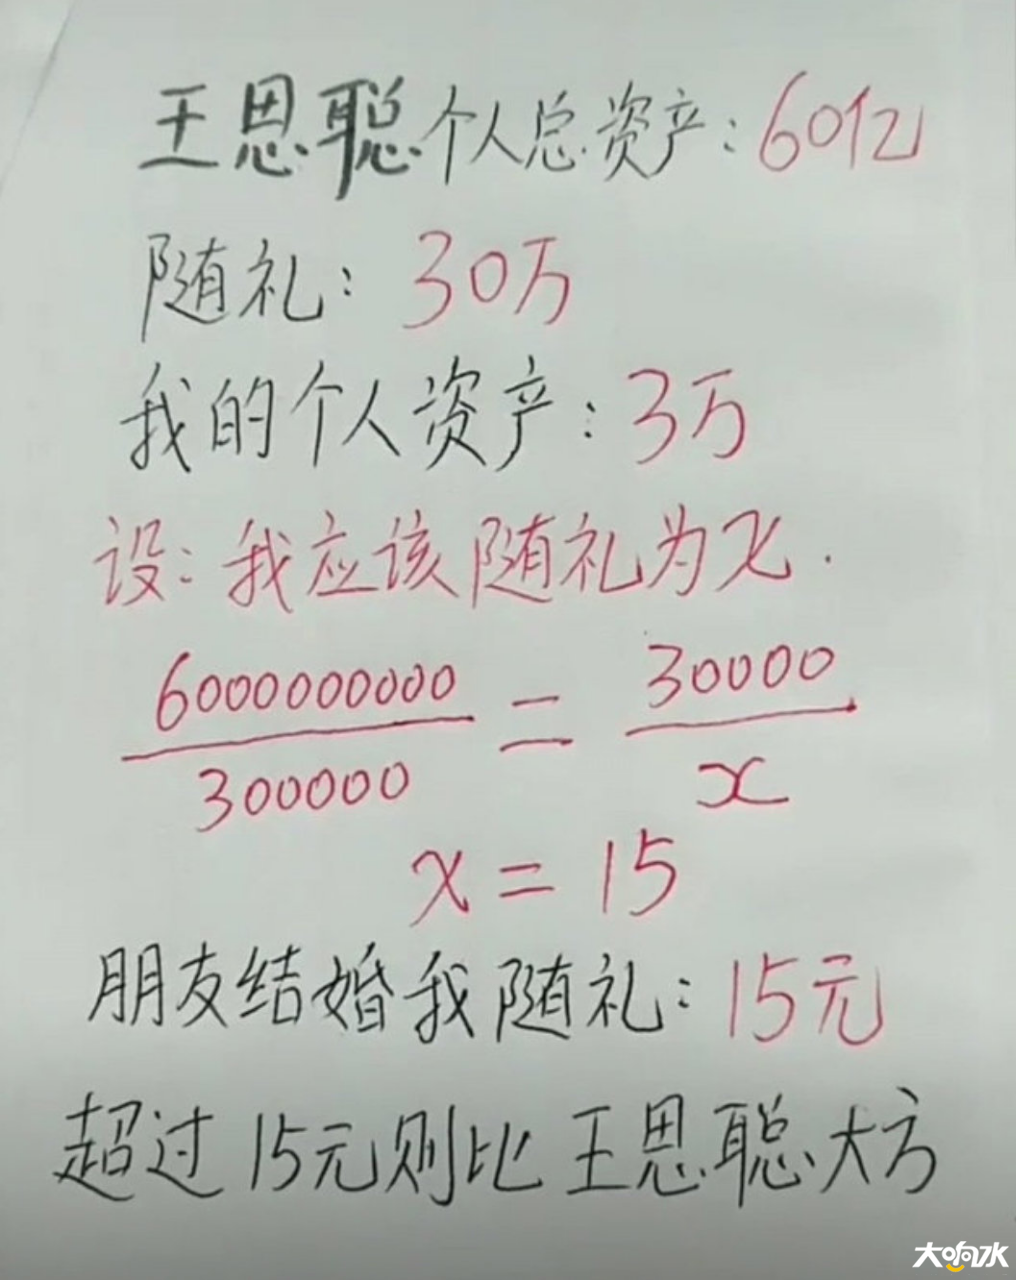 王思聪个人总资产：60亿
随礼：30万
我的个人资产：3万
设：我应该随礼为x.
6000000000/300000 = 30000/x
x = 15
朋友结婚我随礼：15元
超过15元则比王思聪大方
大响水